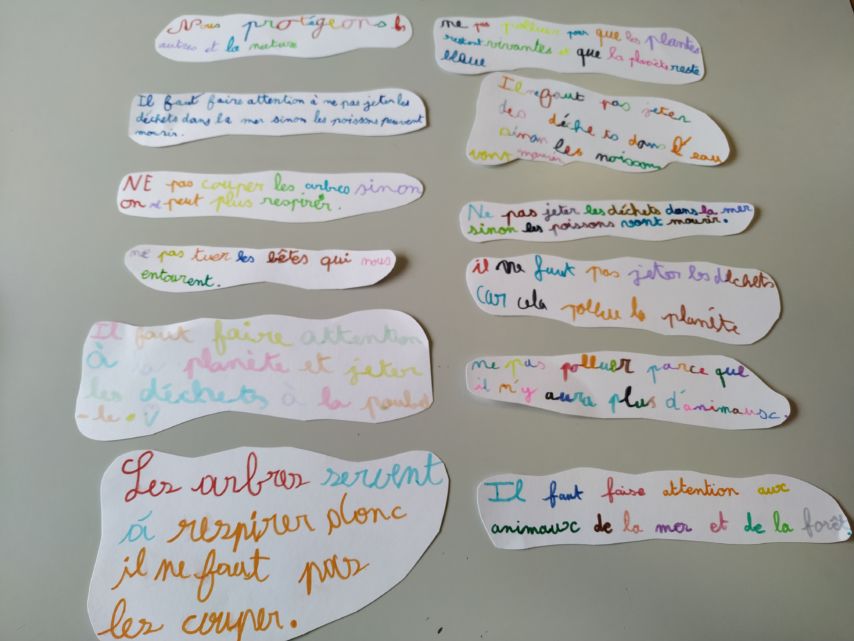 Nous protégeons les
autres et la nature
Il faut faire attention à ne pas jeter les
déchets dans la mer sinon les poissons peuvent
mourir.
NE pas couper les arbres sinon
on ne peut plus respirer.
ne pas tuer les bêtes qui nous
entourent.
Il faut faire attention
à la planète et jeter
les déchets à la poubel
-le.
Les arbres servent
à respirer donc
il ne faut pas
les couper.
ne pas polluer pour que les plantes
restent vivantes et que la planète reste
bleue
Il ne faut pas jeter
des déchets dans l'eau
sinon les poissons
vont mourir
Ne pas jeter les déchets dans la mer
sinon les poissons vont mourir.
il ne faut pas jeter les déchets
car cela pollue la planète
ne pas polluer parce que
il n'y aura plus d'animaux.
Il faut faire attention aux
animaux de la mer et de la forêt.